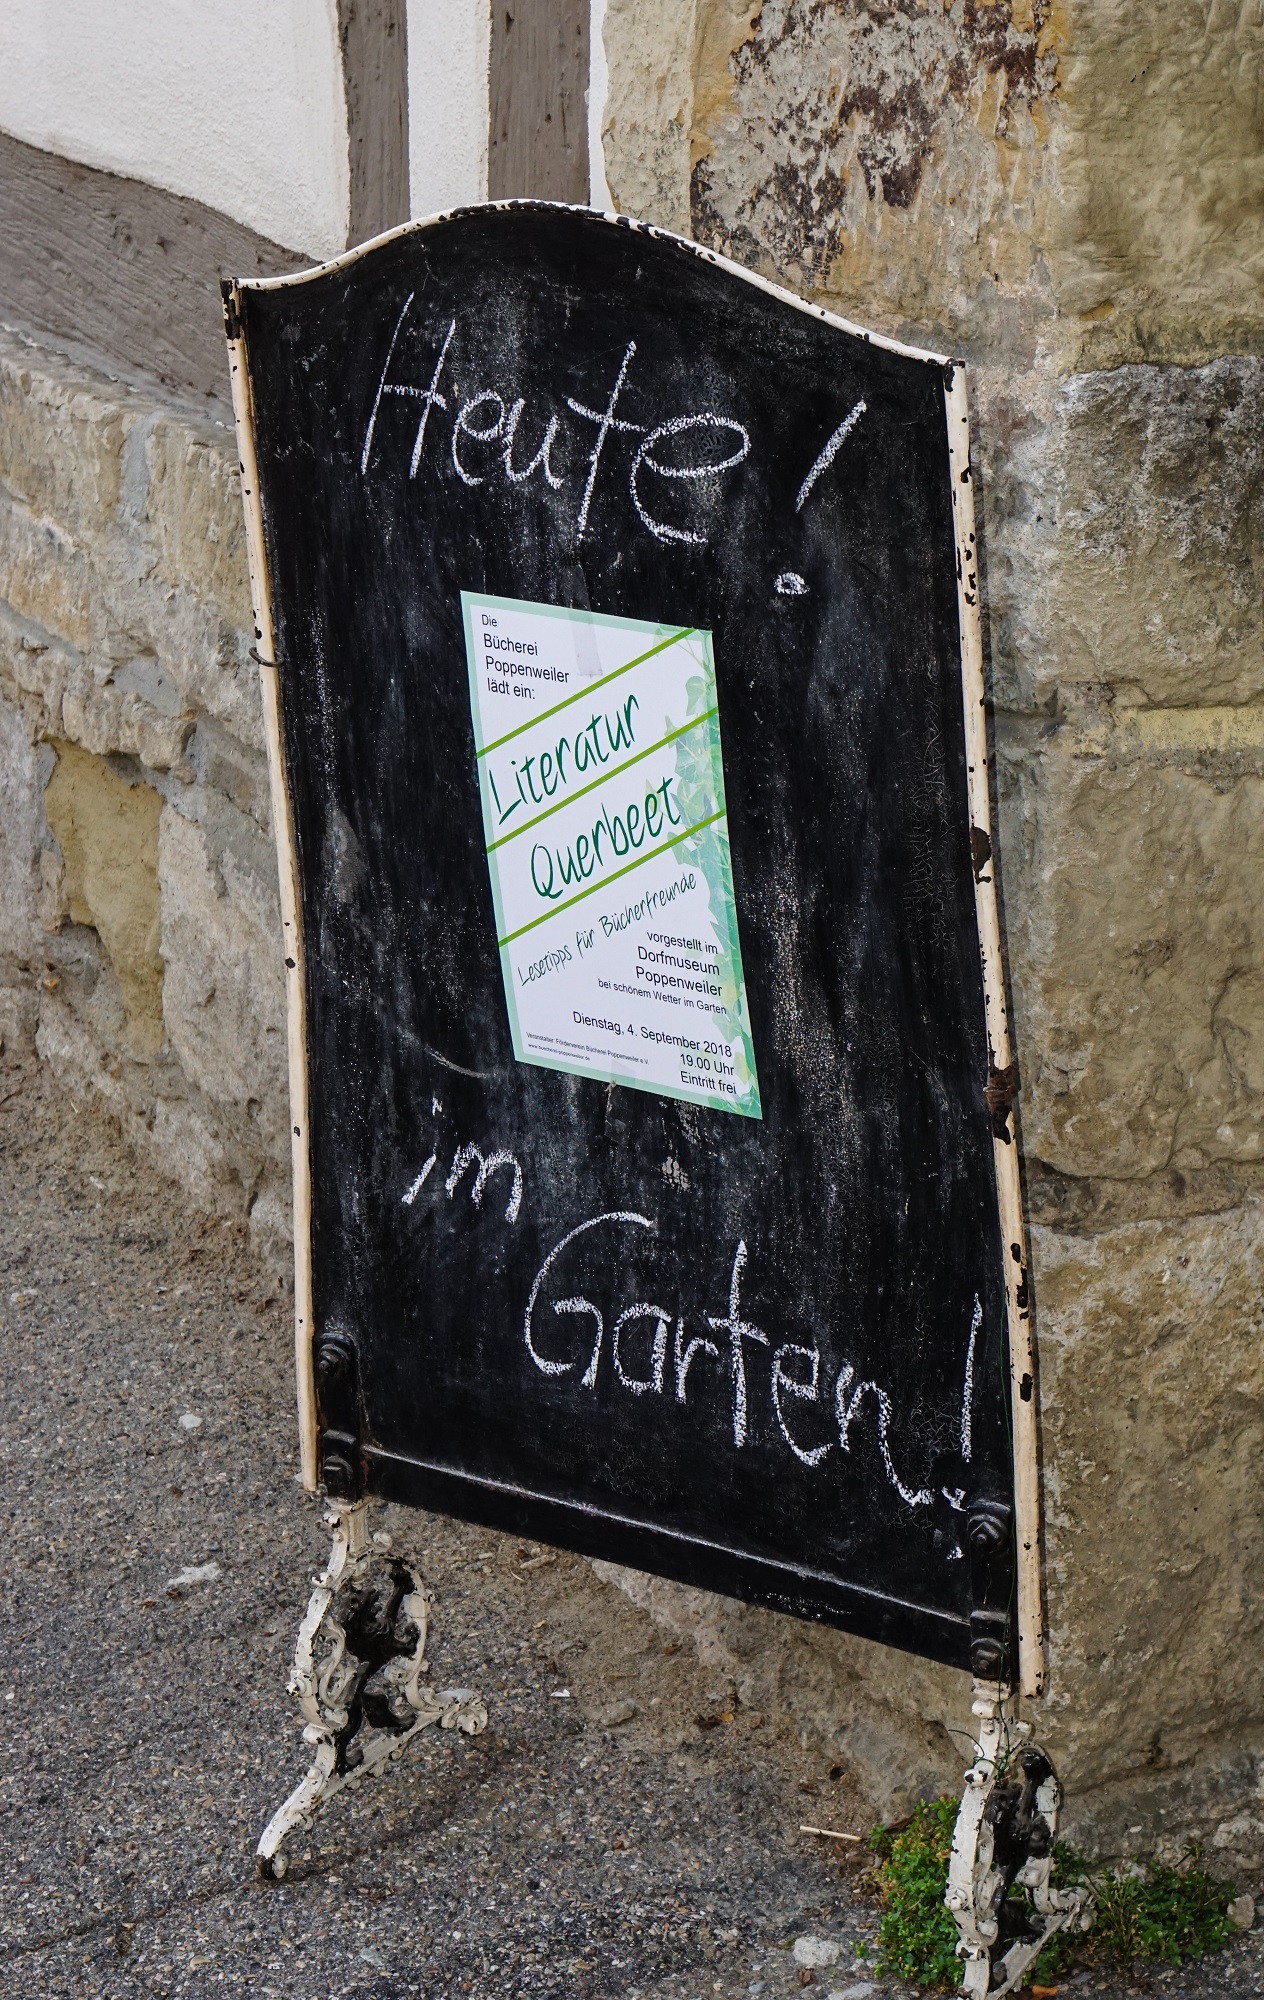 Heute!
Die
Bücherei
Poppenweiler
lädt ein:
Literatur
Querbeet
Lesetipps für Bücherfreunde
vorgestellt im
Dorfmuseum
Poppenweiler
bei schönem Wetter im Garten
Dienstag, 4. September 2018
19.00 Uhr
Eintritt frei
Veranstalter: Förderverein Bücherei Poppenweiler e.V.
www.buecherei-poppenweiler.de
im
Garten!